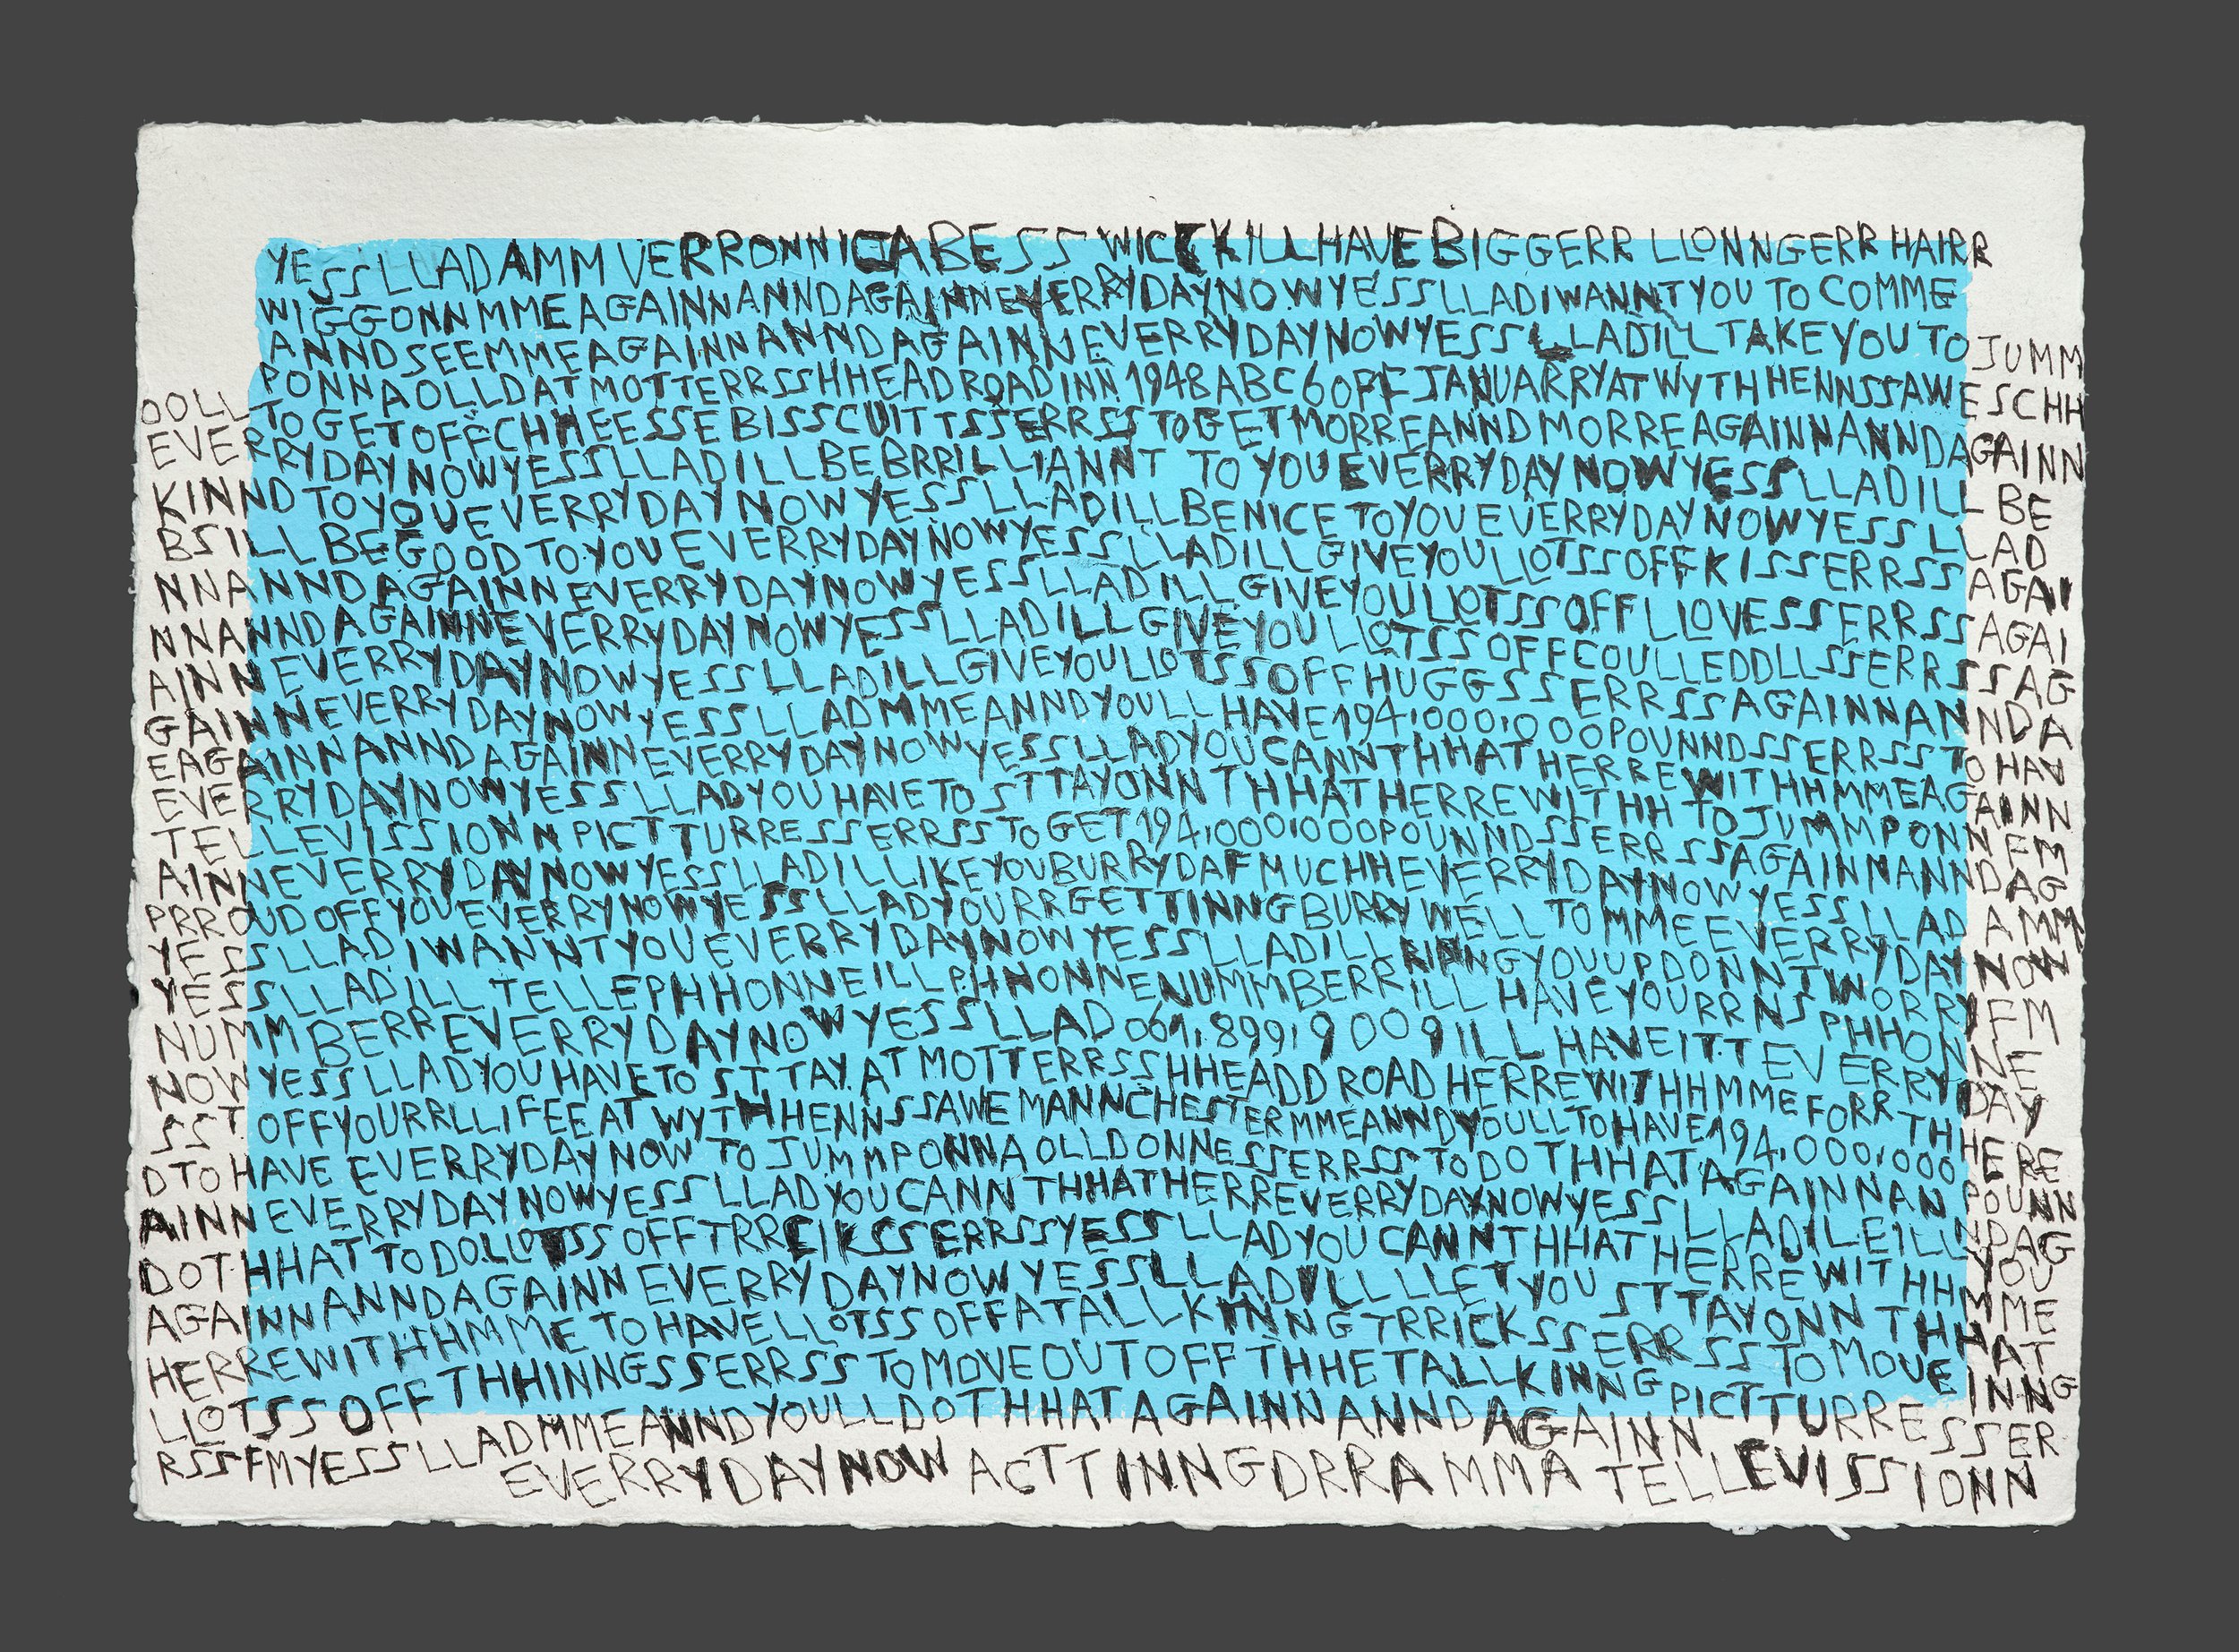 YESSLLADAMM VERRONNICABESS WICKKILLHAVEBIGGERR LLONNGERR HAIRR
WIGGONNMMEAGAINNANNDAGAINNEVERRYDAYNOWYESSLLADIWANNTYOU TO COMME
ANNDSEEMMEAGAINNANNDAGAINNEVERRYDAYNOWYESSLLADILL TAKEYOU TO JUMM
PONNAOLLDATMOTTERRSSHHEADROADINN1948ABC6OFFJANUARRYATWYTHHENNSSAWESCHH
OOLLTOGETOFFCHHEESSEBISSCUITTSSERRSSTOGETMORREANNDMORREAGAINNANNDAGAINN
EVERRYDAYNOWYESSLLADILLBEBRRILLIANNT TO YOUEVERRYDAYNOWYESSLLADILL BE
KINND TOYOUEVERRYDAYNOWYESSLLADILLBENICE TOYOUEVERRYDAYNOWYESSLLAD
BSILLBEGOOD TOYOUEVERRYDAYNOWYESSLLADILLGIVEYOULLOTSSOFFKISSERRSSAGAI
NNANNDAGAINNEVERRYDAYNOWYESSLLADILLGIVEYOULLOTSSOFFLLOVESSERRSSAGAI
NNANNDAGAINNEVERRYDAYNOWYESSLLADILLGIVEYOULLOTSSOFFCOULLEDDLLSSERRSSAG
AINNEVERRYDAYNOWYESSLLADILLGIVEYOULLOTSSOFFHUGGSSERRSSAGAINNANNDA
GAINNEVERRYDAYNOWYESSLLADMMEANNDYOULLHAVE194,000,000POUNNDSSERRSSTOHAV
EAGAINNANNDAGAINNEVERRYDAYNOWYESSLLADYOUCANNTHHATHERREWITHHMMEAGAINN
EVERRYDAYNOWYESSLLADYOUHAVETOSTTAYONNTHHATHERREWITHH TOJUMMPONNFM
TELLEVISSIONNPICTTURRESSERRSSTOGET194,000,000POUNNDSSERRSSAGAINNANNDAG
AINNEVERRYDAYNOWYESSLLADILLLIKEYOUBURRYDAFMUCHHEVERRYDAYNOWYESSLLADAMM
PRROUDOFFYOUEVERRYNOWYESSLLADYOURRGETTINNGBURRYWELL TOMMEEVERRYDAYNOW
YESSLLADIWANNTYOUEVERRYDAYNOWYESSLLADILLRINNGYOUUPDONNTWORRYFM
YESSLLADILL TELLEPHHONNEILLPHHONNENUMMBERRILLHAVEYOURRNSPHHONNE
NUMMBERREVERRYDAYNOWYESSLLAD061,899,9009ILLHAVEITTEVERRYDAY
NOWYESSLLADYOUHAVETOSTTAYATMOTTERRSSHHEADDROADHERREWITHHMMEFORRTHHERE
SSTOFFYOURRLLIFEEATWYTHHENNSSAWEMANNCHESTERMMEANNDYOULLTOHAVE194,000,000POUNN
DTOHAVEEVERRYDAYNOW TO JUMMPONNAOLLDONNESSERRSSTODOTHHATAGAINNANNDAG
AINNEVERRYDAYNOWYESSLLADYOUCANNTHHATHERREVERRYDAYNOWYESSLLADILEILLYOU
DOTHHATTODOLLOTSSOFFTRREIKSSERRSSYESSLLADYOUCANNTHHATHERREWITHHMME
AGAINNANNDAGAINNEVERRYDAYNOWYESSLLADILLLLETYOUSTTAYONNTHHAT
HERREWITHHMME TOHAVELLOTSSOFFATALLKINNGTRRICKSSERRSSTOMOVEINNG
LLOTSSOFFTHHINNGSSERRSS TOMOVEOUTOFFTHHETALLKINNGPICTTURRESSER
RSSFMYESSLLADMMEANNDYOULLDOTHHATAGAINNANNDAGAINN
EVERRYDAYNOW ACTTINNGDRRAMMA TELLEVISSIONN